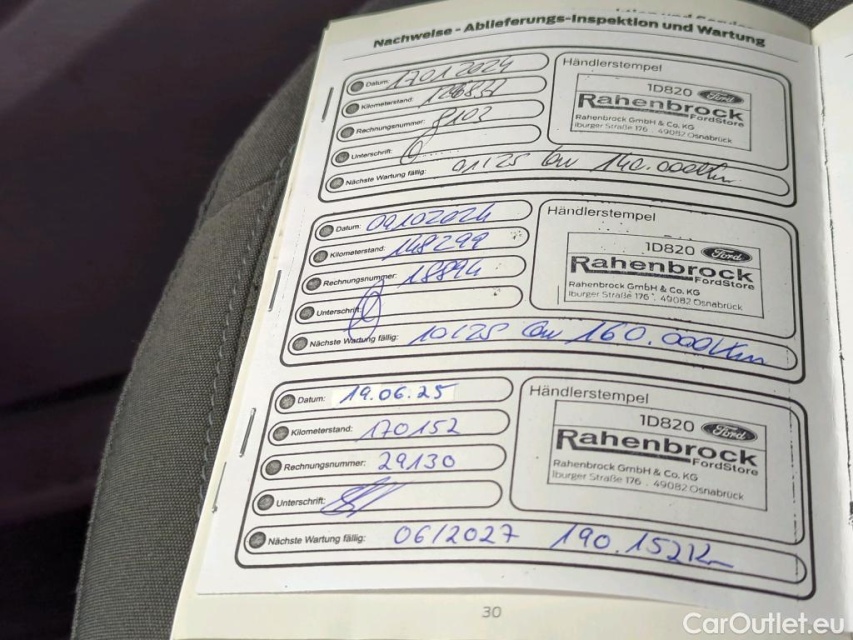 Nachweise - Ablieferungs-Inspektion und Wartung
Datum: 17012024
Kilometerstand:
Rechnungsnummer: 8103
Unterschrift:
Nächste Wartung fällig: 01/25 bei 140.000km
Händlerstempel
1D820 Ford
Rahenbrock
FordStore
Rahenbrock GmbH & Co. KG
Iburger Straße 176 . 49082 Osnabrück
Datum: 09102024
Kilometerstand: 148299
Rechnungsnummer: 18894
Unterschrift:
Nächste Wartung fällig: 10/25 bei 160.000km
Händlerstempel
1D820 Ford
Rahenbrock
FordStore
Rahenbrock GmbH & Co. KG
Iburger Straße 176 . 49082 Osnabrück
Datum: 19.06.25
Kilometerstand: 170152
Rechnungsnummer: 29130
Unterschrift:
Nächste Wartung fällig: 06/2027 190.152km
Händlerstempel
1D820 Ford
Rahenbrock
FordStore
Rahenbrock GmbH & Co. KG
Iburger Straße 176 . 49082 Osnabrück
30
CarOutlet.eu